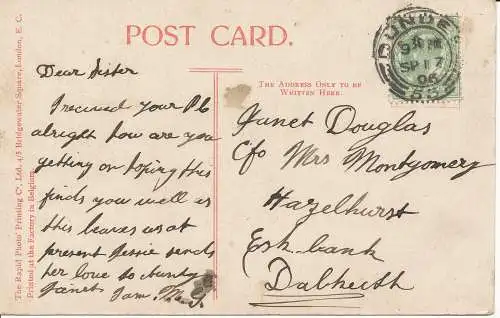 POST CARD.
The Rapid Photo Printing Co. Ltd. 4/5 Bridgewater Square, London, E. C.
Printed at the Factory in Belgium.
Dear Sister
I received your P.C
alright how are you
getting on hoping this
finds you well as
this leaves us at
present Jessie sends
her love to Aunty
Janet I am
THE ADDRESS ONLY TO BE
WRITTEN HERE.
DUNDEE
SP 17
06
Janet Douglas
C/o Mrs Montgomery
Hazelhurst
Esk bank
Dalkeith